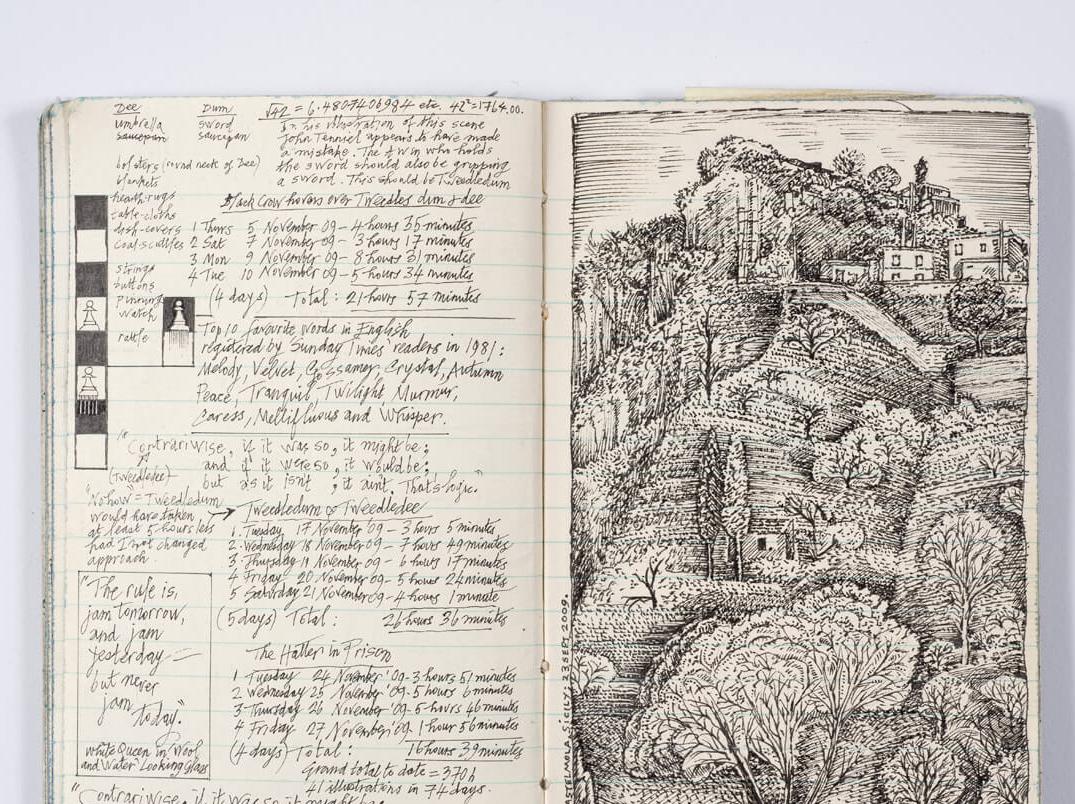 Dee Dum √42 = 6.480740698 4 etc. 42²=1764.00.
umbrella sword In his illustration of this scene
saucepan saucepan John Tenniel appears to have made
a mistake. The twin who holds
bolsters (round neck of Dee) the sword should also be gripping
blankets a sword. This should be Tweedledum
hearth-rugs Black Crow hovers over Tweedles dum & dee
table-cloths
dish-covers 1 Thurs 5 November 09 - 4 hours 35 minutes
coal-scuttles 2 Sat 7 November 09 - 3 hours 17 minutes
3 Mon 9 November 09 - 8 hours 31 minutes
strings 4 Tue 10 November 09 - 5 hours 34 minutes
buttons
pinning (4 days) Total: 21 hours 57 minutes
watch
rattle
Top 10 favourite words in English
registered by Sunday Times' readers in 1981:
Melody, Velvet, Gossamer, Crystal, Autumn
Peace, Tranquil, Twilight, Murmur,
Caress, Mellifluous and Whisper.
"Contrariwise, if it was so, it might be;
and if it were so, it would be;
(Tweedledee) but as it isn't, it ain't. That's logic."
"Nohow = Tweedledum
would have taken → Tweedledum & Tweedledee
at least 7 hours less 1. Tuesday 17 November '09 - 3 hours 5 minutes
had I not changed 2. Wednesday 18 November 09 - 7 hours 49 minutes
approach. 3. Thursday 19 November 09 - 6 hours 17 minutes
4 Friday 20 November 09 - 5 hours 24 minutes
5 Saturday 21 November 09 - 4 hours 1 minute
(5 days) Total: 26 hours 36 minutes
"The rule is,
jam tomorrow,
and jam
yesterday -
but never
jam
today."
White Queen in 'Wool
and Water' Looking Glass
The Hatter in Prison
1 Tuesday 24 November '09 - 3 hours 51 minutes
2 Wednesday 25 November '09 - 5 hours 6 minutes
3 Thursday 26 November '09 - 5 hours 46 minutes
4 Friday 27 November '09 1 hour 56 minutes
(4 days) Total: 16 hours 39 minutes
Grand total to date = 370h
41 illustrations in 74 days.
"Contrariwise, if it was so it might be
MOLA SICILY, 23 SEP. 2009.